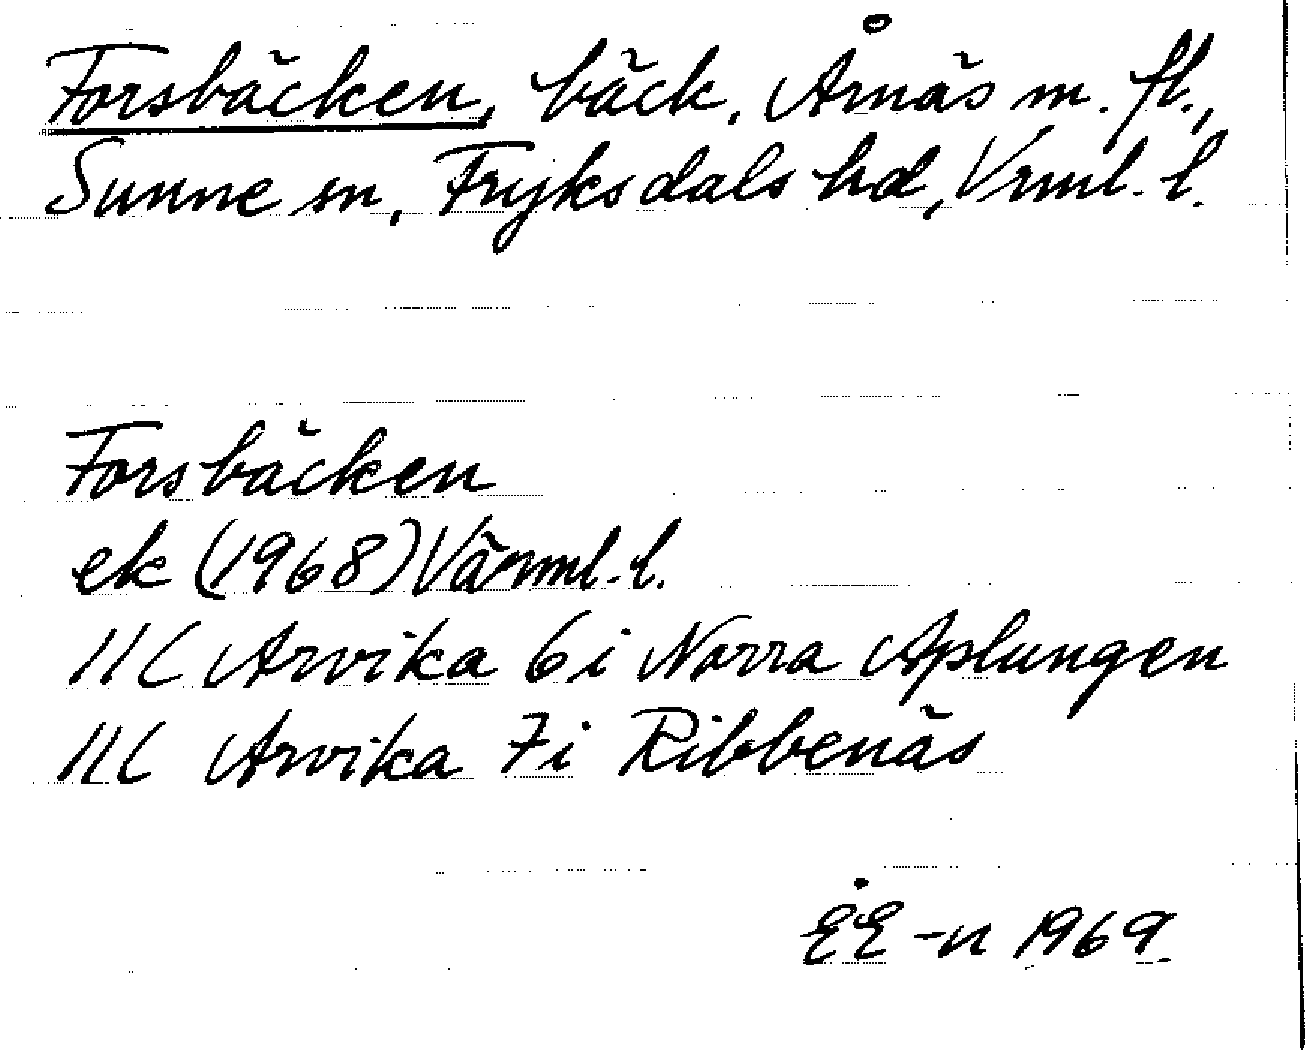 Forsbäcken, bäck, Årnäs m. fl.,
Sunne sn, Fryksdals hd, Vrml. l.
Forsbäcken
ek (1968) Värml. l.
11C Arvika 6i Norra Aplungen
11C Arvika 7i Ribbenäs
-n 1969